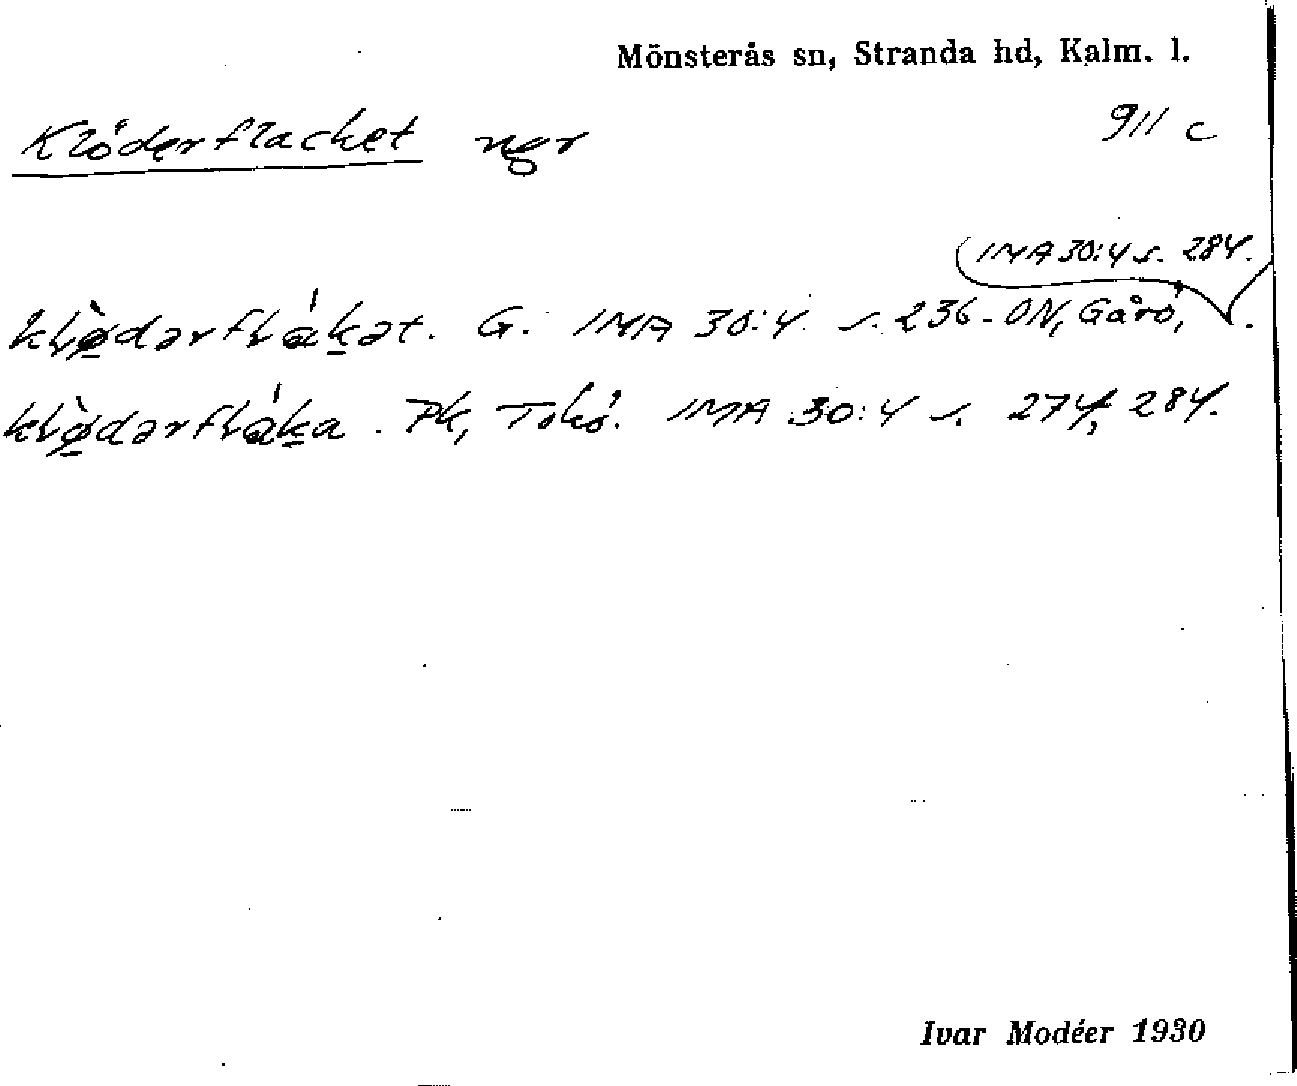 Mönsterås sn, Stranda hd, Kalm. l.
Klöderflacket ngr 911 c
IMA 30:4 s. 284.
klø̀dərflákət. G. IMA 30:4 s. 236 - ON, Gårö, .
klø̀dərfláka. Pk, Tokö. IMA 30:4 s. 274, 284.
Ivar Modéer 1930